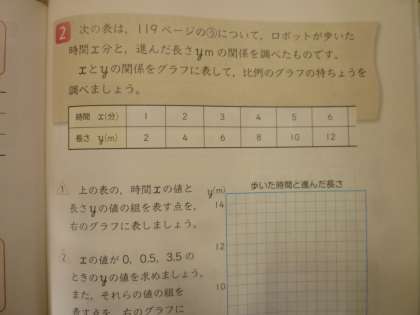 2 次の表は，119ページの③について，ロボットが歩いた
時間x分と，進んだ長さymの関係を調べたものです。
xとyの関係をグラフに表して，比例のグラフの特ちょうを
調べましょう。
時間 x(分) 1 2 3 4 5 6
長さ y(m) 2 4 6 8 10 12
① 上の表の，時間xの値と
長さyの値の組を表す点を，
右のグラフに表しましょう。
② xの値が0，0.5，3.5の
ときのyの値を求めましょう。
また，それらの値の組を
表す点を，右のグラフに
歩いた時間と進んだ長さ
y(m)
14
12
10